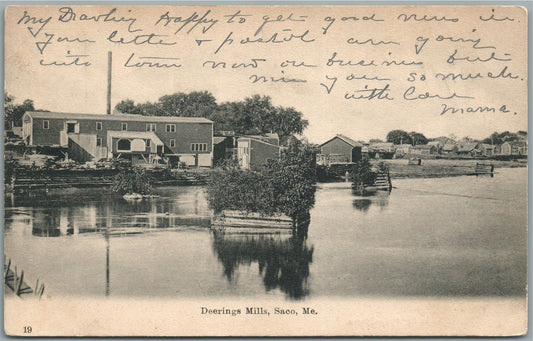 My Darling Happy to get good news in
your letter & postal am going
into town now on business but
miss you so much.
with love
mama.
Deerings Mills, Saco, Me.
19